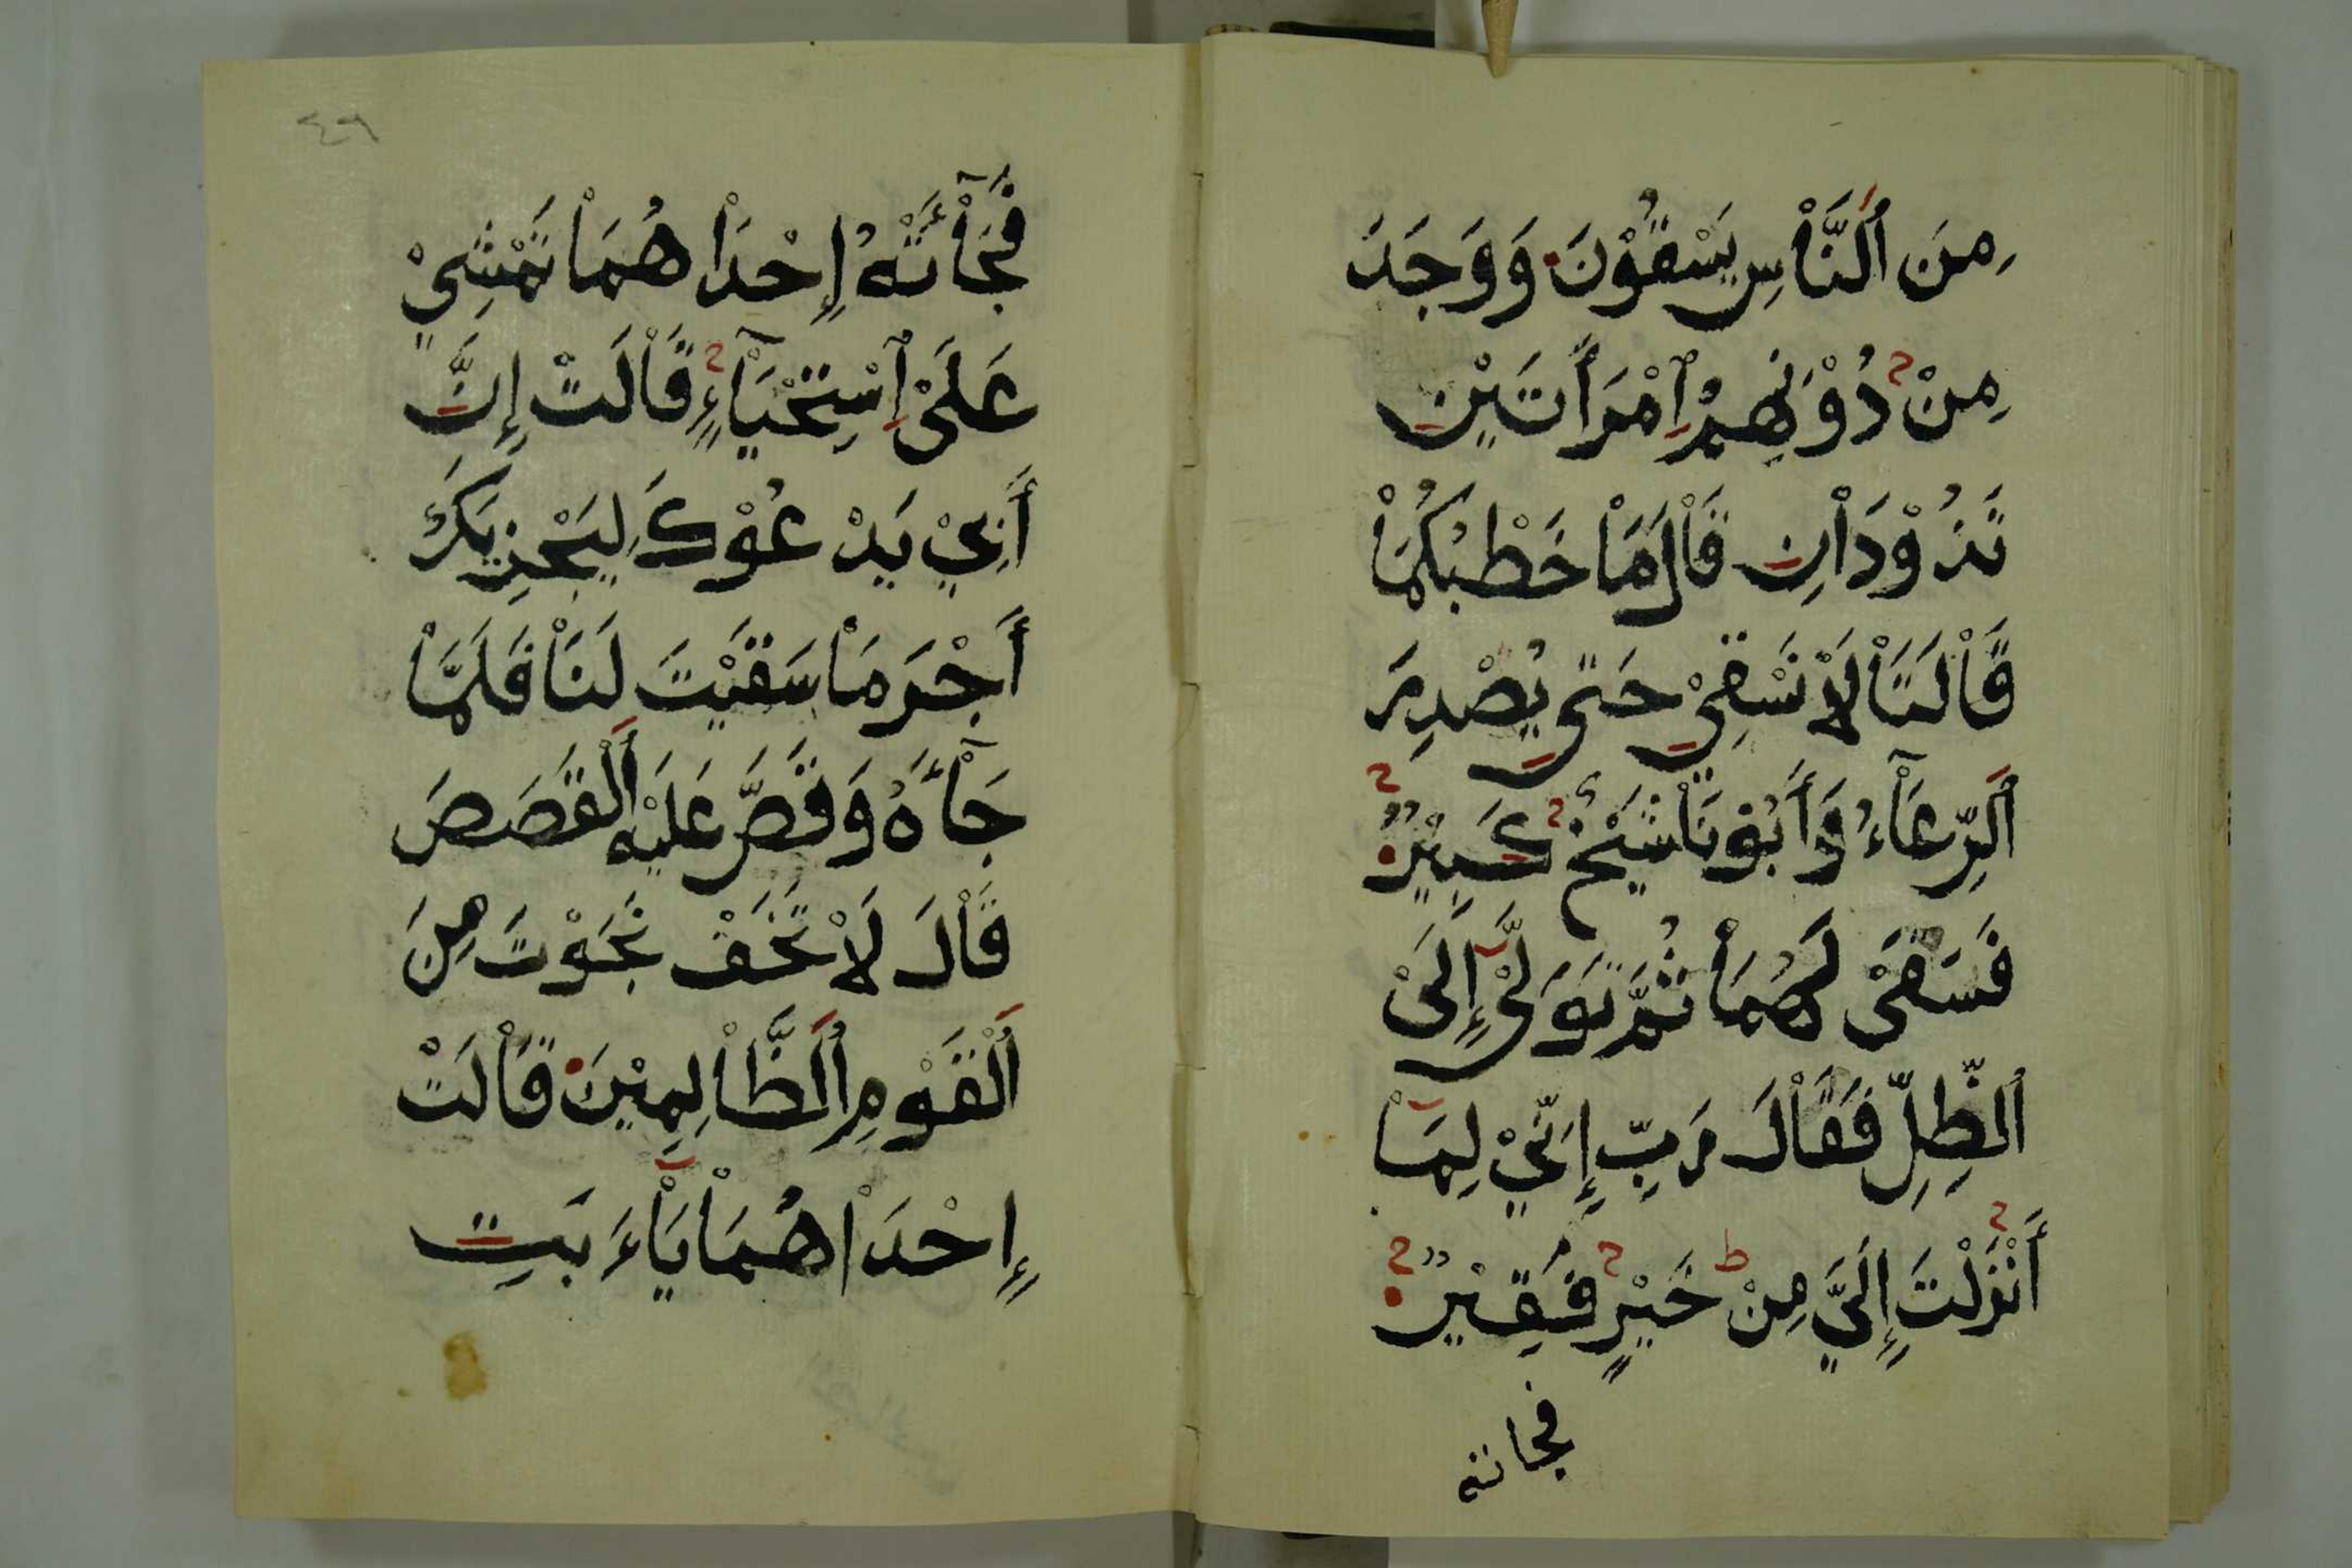 مِنَ ٱلنَّاْسِ يَسْقُوْنَ وَوَجَدَ
مِنْ دُوْنِهِمُ ٱِمْرَأَتَيْنِ
تَذُوْدَاْنِ قَاْلَ مَاْ خَطْبُكُمَاْ
قَاْلَتَاْ لَاْ نَسْقِيْ حَتَّى يُصْدِرَ
ٱلرِّعَاْءُ وَأَبُوْنَاْ شَيْخٌ كَبِيْرٌ
فَسَقَىْ لَهُمَاْ ثُمَّ تَوَلَّىْ إِلَىْ
ٱلظِّلِّ فَقَاْلَ رَبِّ إِنِّيْ لِمَاْ
أَنْزَلْتَ إِلَيَّ مِنْ خَيْرٍ فَقِيْرٌ
فجائته
٤٩
فَجَآْئَتْهُ إِحْدَاْهُمَاْ تَمْشِيْ
عَلَىْ ٱِسْتِحْيَآْءٍ قَاْلَتْ إِنَّ
أَبِيْ يَدْعُوْكَ لِيَجْزِيَكَ
أَجْرَ مَاْ سَقَيْتَ لَنَاْ فَلَمَّاْ
جَآْءَهُ وَقَصَّ عَلَيْهِ ٱلْقَصَصَ
قَاْلَ لَاْ تَخَفْ نَجَوْتَ مِنَ
ٱلْقَوْمِ ٱلظَّاْلِمِيْنَ قَاْلَتْ
إِحْدَاْهُمَاْ يَاْءَبَتِ